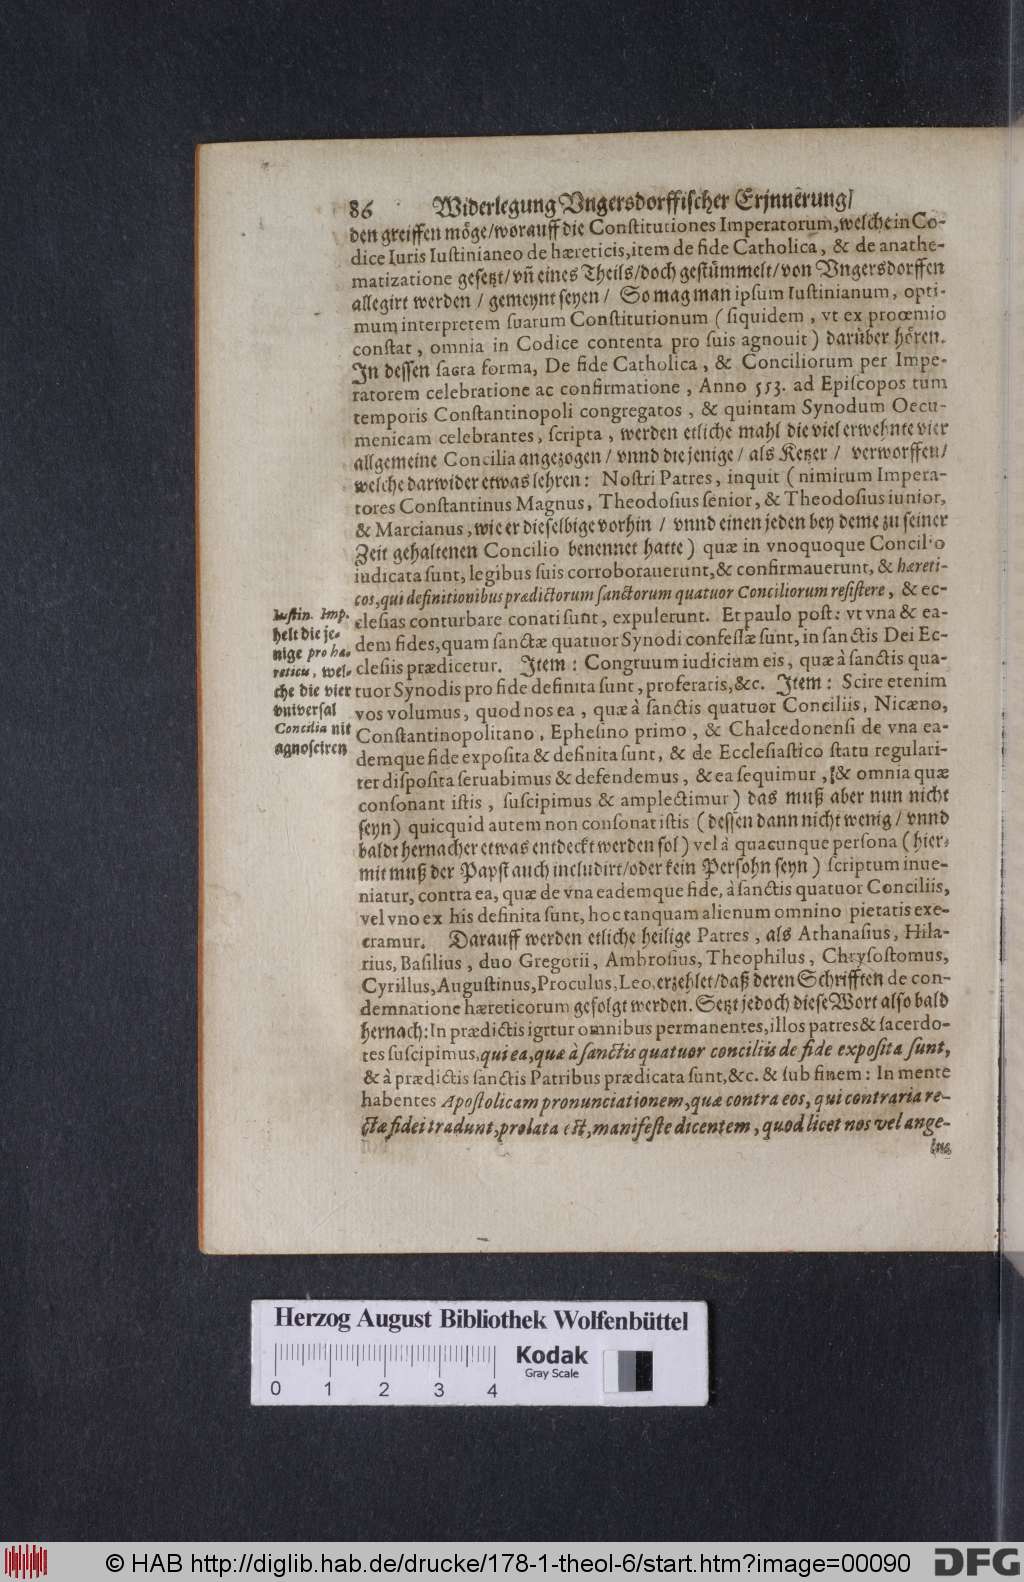 86 Widerlegung Vngersdorffischer Erjnnerung/
den greiffen möge/worauff die Constitutiones Imperatorum,welche in Co-
dice Iuris Iustinianeo de hæreticis,item de fide Catholica, & de anathe-
matizatione gesetzt/vñ eines Theils/doch gestümmelt/von Vngersdorffen
allegirt werden / gemeynt seyen / So mag man ipsum Iustinianum, opti-
mum interpretem suarum Constitutionum (siquidem, vt ex proœmio
constat, omnia in Codice contenta pro suis agnouit) darüber hören.
In dessen sacra forma, De fide Catholica, & Conciliorum per Impe-
ratorem celebratione ac confirmatione, Anno 553. ad Episcopos tum
temporis Constantinopoli congregatos, & quintam Synodum Oecu-
menicam celebrantes, scripta, werden etliche mahl die viel erwehnte vier
allgemeine Concilia angezogen / vnnd die jenige / als Ketzer / verworffen/
welche darwider etwas lehren: Nostri Patres, inquit (nimirum Impera-
tores Constantinus Magnus, Theodosius senior, & Theodosius iunior,
& Marcianus, wie er dieselbige vorhin / vnnd einen jeden bey deme zu seiner
Zeit gehaltenen Concilio benennet hatte) quæ in vnoquoque Concilio
iudicata sunt, legibus suis corroborauerunt,& confirmauerunt, & hæreti-
cos,qui definitionibus prædictorum sanctorum quatuor Conciliorum resistere, & ec-
clesias conturbare conati sunt, expulerunt. Et paulo post: vt vna & ea-
dem fides,quam sanctæ quatuor Synodi confessæ sunt,in sanctis Dei Ec-
clesiis prædicetur. Item: Congruum iudicium eis, quæ à sanctis qua-
tuor Synodis pro fide definita sunt, proferatis,&c. Item: Scire etenim
vos volumus, quod nos ea, quæ à sanctis quatuor Conciliis, Nicæno,
Constantinopolitano, Ephesino primo, & Chalcedonensi de vna ea-
demque fide exposita & definita sunt, & de Ecclesiastico statu regulari-
ter disposita seruabimus & defendemus, & ea sequimur, & omnia quæ
consonant istis, suscipimus & amplectimur) das muß aber nun nicht
seyn) quicquid autem non consonat istis (dessen dann nicht wenig / vnnd
baldt hernacher etwas entdeckt werden sol) vel à quacunque persona (hier-
mit muß der Papst auch includirt/oder kein Persohn seyn) scriptum inue-
niatur, contra ea, quæ de vna eademque fide, à sanctis quatuor Conciliis,
vel vno ex his definita sunt, hoc tanquam alienum omnino pietatis exe-
cramur. Darauff werden etliche heilige Patres, als Athanasius, Hila-
rius, Basilius, duo Gregorii, Ambrosius, Theophilus, Chrysostomus,
Cyrillus,Augustinus,Proculus,Leo,erzehlet/daß deren Schrifften de con-
demnatione hæreticorum gefolgt werden. Setzt jedoch diese Wort also bald
hernach:In prædictis igitur omnibus permanentes,illos patres & sacerdo-
tes suscipimus,qui ea,quæ à sanctis quatuor conciliis de fide exposita sunt,
& à prædictis sanctis Patribus prædicata sunt,&c. & sub finem: In mente
habentes Apostolicam pronunciationem,quæ contra eos, qui contraria re-
ctæ fidei tradunt,prolata est,manifeste dicentem, quod licet nos vel ange-
lus
Iustin. Imp.
helt die je-
nige pro hæ-
reticis, wel-
che die vier
vniversal
Concilia nit
agnosciren
Herzog August Bibliothek Wolfenbüttel
Kodak
Gray Scale
0 1 2 3 4
© HAB http://diglib.hab.de/drucke/178-1-theol-6/start.htm?image=00090
DFG